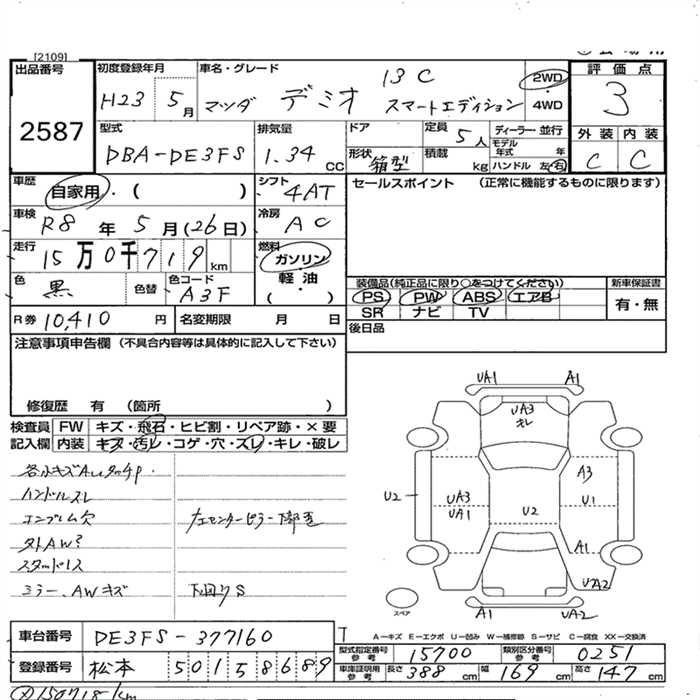 [2109]
出品番号
2587
初度登録年月
H23 5月
車名・グレード
マツダ デミオ 13C スマートエディション
2WD
・
4WD
評価点
3
外装 内装
C C
型式
DBA-DE3FS
排気量
1.34 cc
ドア
形状 箱型
定員 5人
積載 kg
ディーラー・並行
モデル年式 年
ハンドル 左・右
車歴
自家用・( )
シフト
4AT
セールスポイント (正常に機能するものに限ります)
車検
R8年5月(26日)
冷房
AC
走行
15万0千719km
燃料
ガソリン
軽・油
( ・ )
色
黒
色替
色コード
A3F
装備品(純正品に限り○をつけてください)
PS PW ABS エアB
SR ナビ TV
新車保証書
有・無
R券 10,410円
名変期限 月 日
後日品
注意事項申告欄 (不具合内容等は具体的に記入して下さい)
修復歴 有 (箇所 )
検査員記入欄
FW キズ・飛石・ヒビ割・リペア跡・×要
内装 キズ・汚レ・コゲ・穴・スレ・キレ・破レ
各小キズA
ハンドルスレ
エンブレム欠
左センターピラー下部
外AW?
スタッドレス
ミラー、AWキズ
下回りS
UA1 A1
UA3
キレ
A3
U2 UA3 U1
UA1 U2
A1
UA2
スペア
A1 UA2
A-キズ E-エクボ U-凹み W-補修跡 S-サビ C-腐食 XX-交換済
車台番号 DE3FS-377160
登録番号 松本 501 5 8689
型式指定番号 参考 15700
類別区分番号 参考 0251
車庫証明用 参考 長さ 388cm 幅 169cm 高さ 147cm
150718km